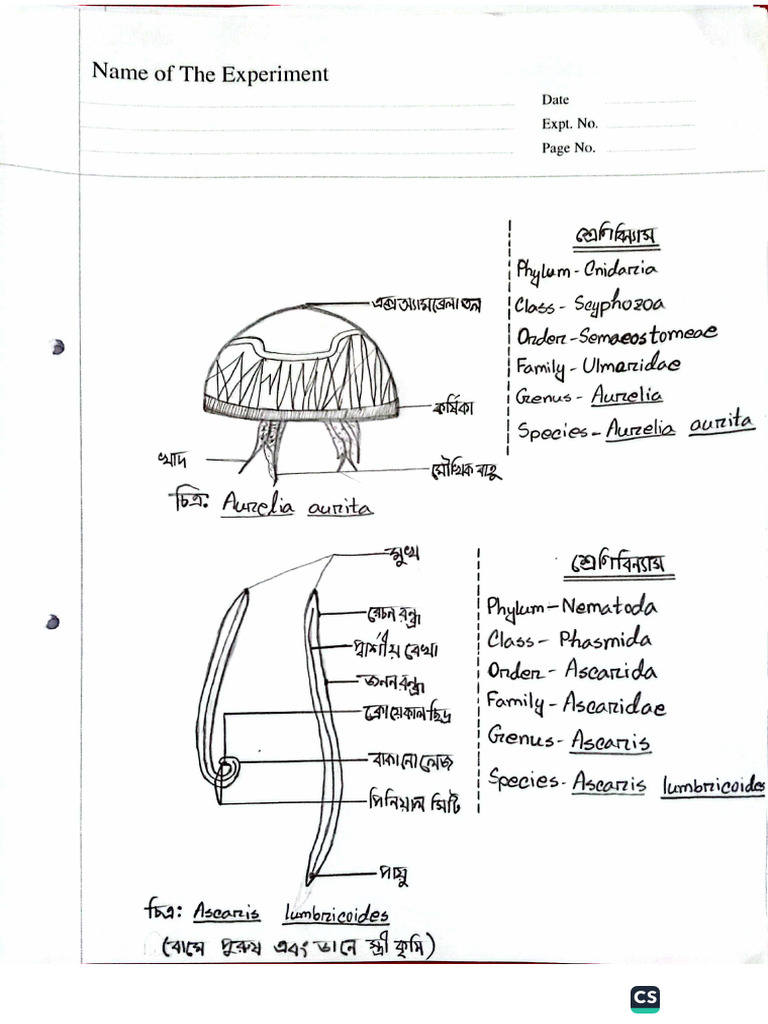 Name of The Experiment
Date
Expt. No.
Page No.
শ্রেণিবিন্যাস
Phylum - Cnidaria
Class - Scyphozoa
Order - Semaeostomeae
Family - Ulmaridae
Genus - Aurelia
Species - Aurelia aurita
এক্স অ্যামব্রেলা তল
কর্ষিকা
খাদ
মৌখিক বাহু
চিত্র: Aurelia aurita
শ্রেণিবিন্যাস
Phylum - Nematoda
Class - Phasmida
Order - Ascarida
Family - Ascaridae
Genus - Ascaris
Species - Ascaris lumbricoides
মুখ
রেচন রন্ধ্র
পার্শ্বীয় রেখা
জনন রন্ধ্র
ক্লোয়েকাল ছিদ্র
বাকানো লেজ
পিনিয়াল সিটি
পায়ু
চিত্র: Ascaris lumbricoides
(বামে পুরুষ এবং ডানে স্ত্রী কৃমি)
CS